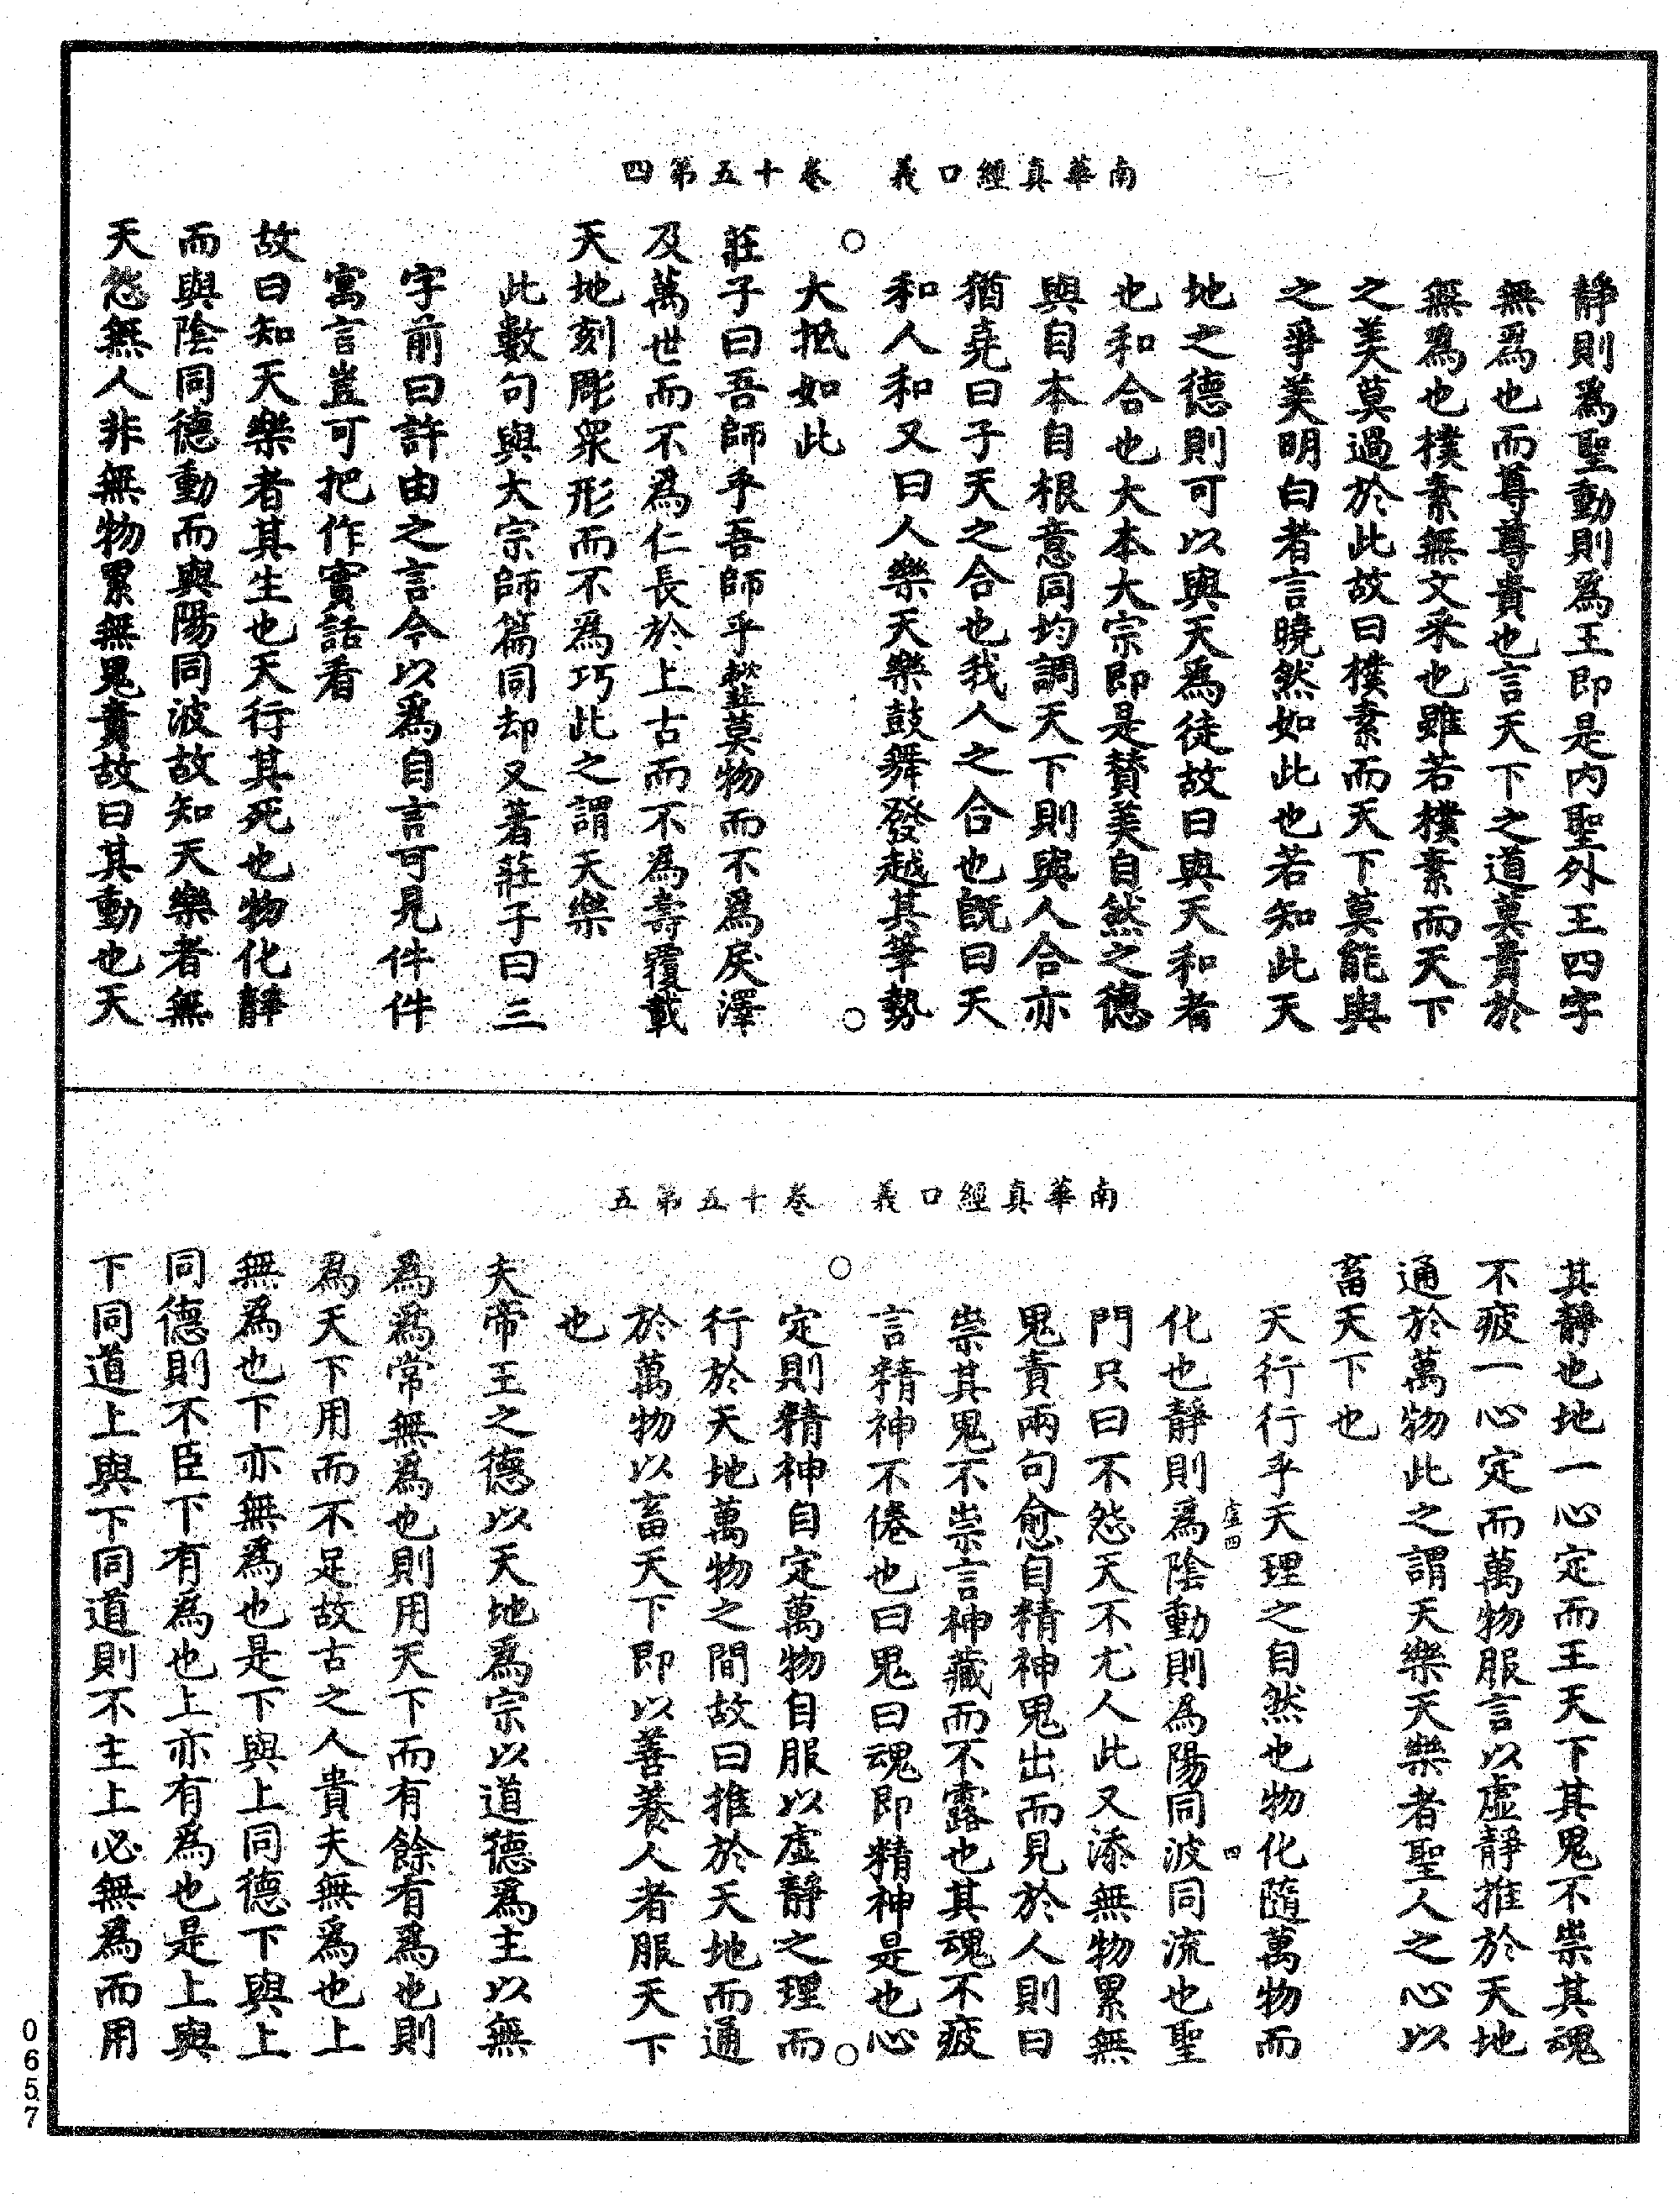 南華真經口義　卷十五第四
靜則爲聖動則爲王即是內聖外王四字
無爲也而尊尊貴也言天下之道莫貴於
無爲也樸素無文采也雖若樸素而天下
之美莫過於此故曰樸素而天下莫能與
之爭美明白者言曉然如此也若知此天
地之德則可以與天爲徒故曰與天和者
也和合也大本大宗即是贊美自然之德
與自本自根意同均調天下則與人合亦
猶堯曰子天之合也我人之合也既曰天
和人和又曰人樂天樂鼓舞發越其筆勢
大抵如此
莊子曰吾師乎吾師乎𩐎萬物而不爲戾澤
及萬世而不爲仁長於上古而不爲壽覆載
天地刻彫衆形而不爲巧此之謂天樂
此數句與大宗師篇同却又著莊子曰三
字前曰許由之言今以爲自言可見件件
寓言豈可把作實話看
故曰知天樂者其生也天行其死也物化靜
而與陰同德動而與陽同波故知天樂者無
天怨無人非無物累無鬼責故曰其動也天
南華真經口義　卷十五第五
其靜也地一心定而王天下其鬼不祟其魂
不疲一心定而萬物服言以虛靜推於天地
通於萬物此之謂天樂天樂者聖人之心以
畜天下也
天行行乎天理之自然也物化隨萬物而
虛四　四
化也靜則爲陰動則爲陽同波同流也聖
門只曰不怨天不尤人此又添無物累無
鬼責兩句愈自精神鬼出而見於人則曰
祟其鬼不祟言神藏而不露也其魂不疲
言精神不倦也曰鬼曰魂即精神是也心
定則精神自定萬物自服以虛靜之理而
行於天地萬物之間故曰推於天地而通
於萬物以畜天下即以善養人者服天下
也
夫帝王之德以天地爲宗以道德爲主以無
爲爲常無爲也則用天下而有餘有爲也則
爲天下用而不足故古之人貴夫無爲也上
無爲也下亦無爲也是下與上同德下與上
同德則不臣下有爲也上亦有爲也是上與
下同道上與下同道則不主上必無爲而用
0657